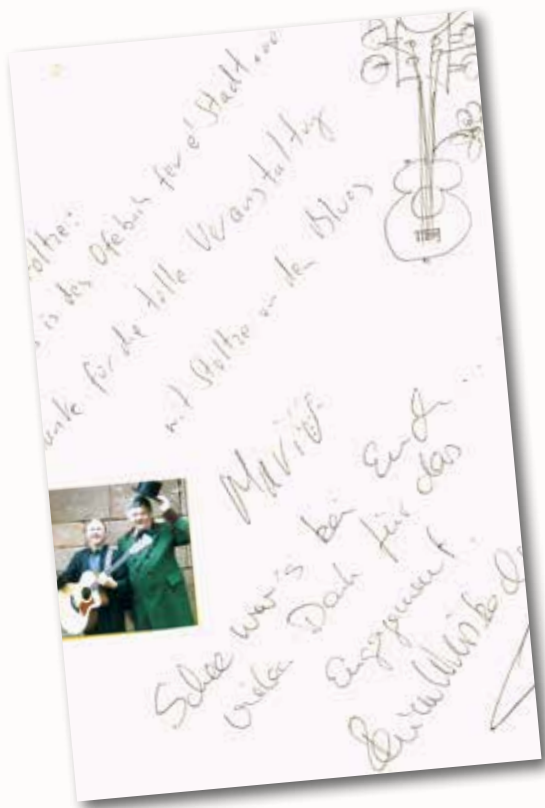 Stoltze:
is des Ofebach fer e' Stadt...
Danke für die tolle Veranstaltung
mit Stoltze und dem Blues
Mario
Schee war's bei Euch...
vielen Dank für das
Engagement.